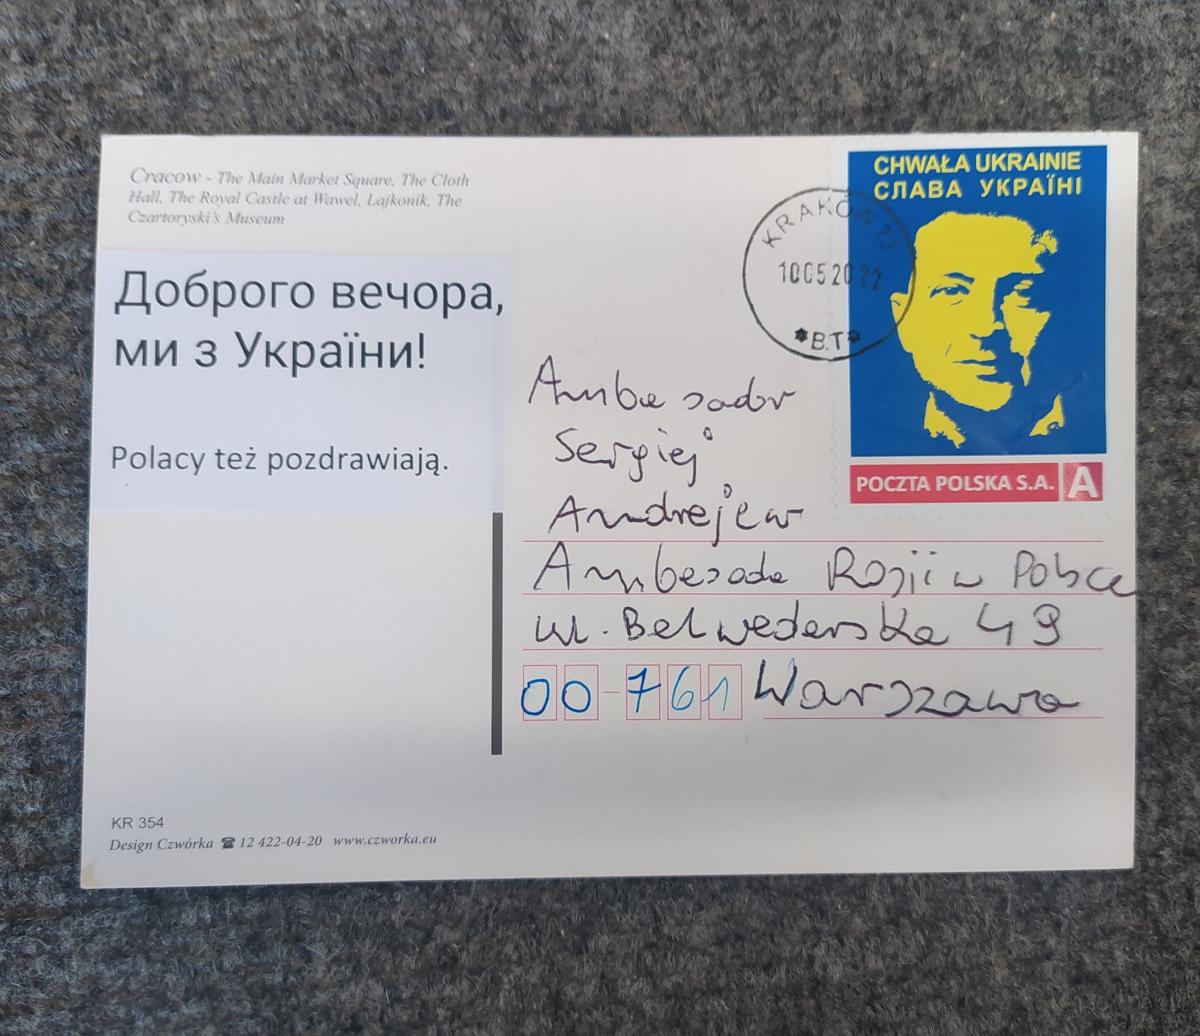 Cracow - The Main Market Square, The Cloth
Hall, The Royal Castle at Wawel, Lajkonik, The
Czartoryski's Museum
Доброго вечора,
ми з України!
Polacy też pozdrawiają.
KRAKÓW 73
10052022
*B.T*
CHWAŁA UKRAINIE
СЛАВА УКРАЇНІ
POCZTA POLSKA S.A. A
Ambasador
Sergiej
Andrejew
Ambasada Rosji w Polsce
ul. Belwederska 49
00-761 Warszawa
KR 354
Design Czwórka ☎ 12 422-04-20 www.czworka.eu